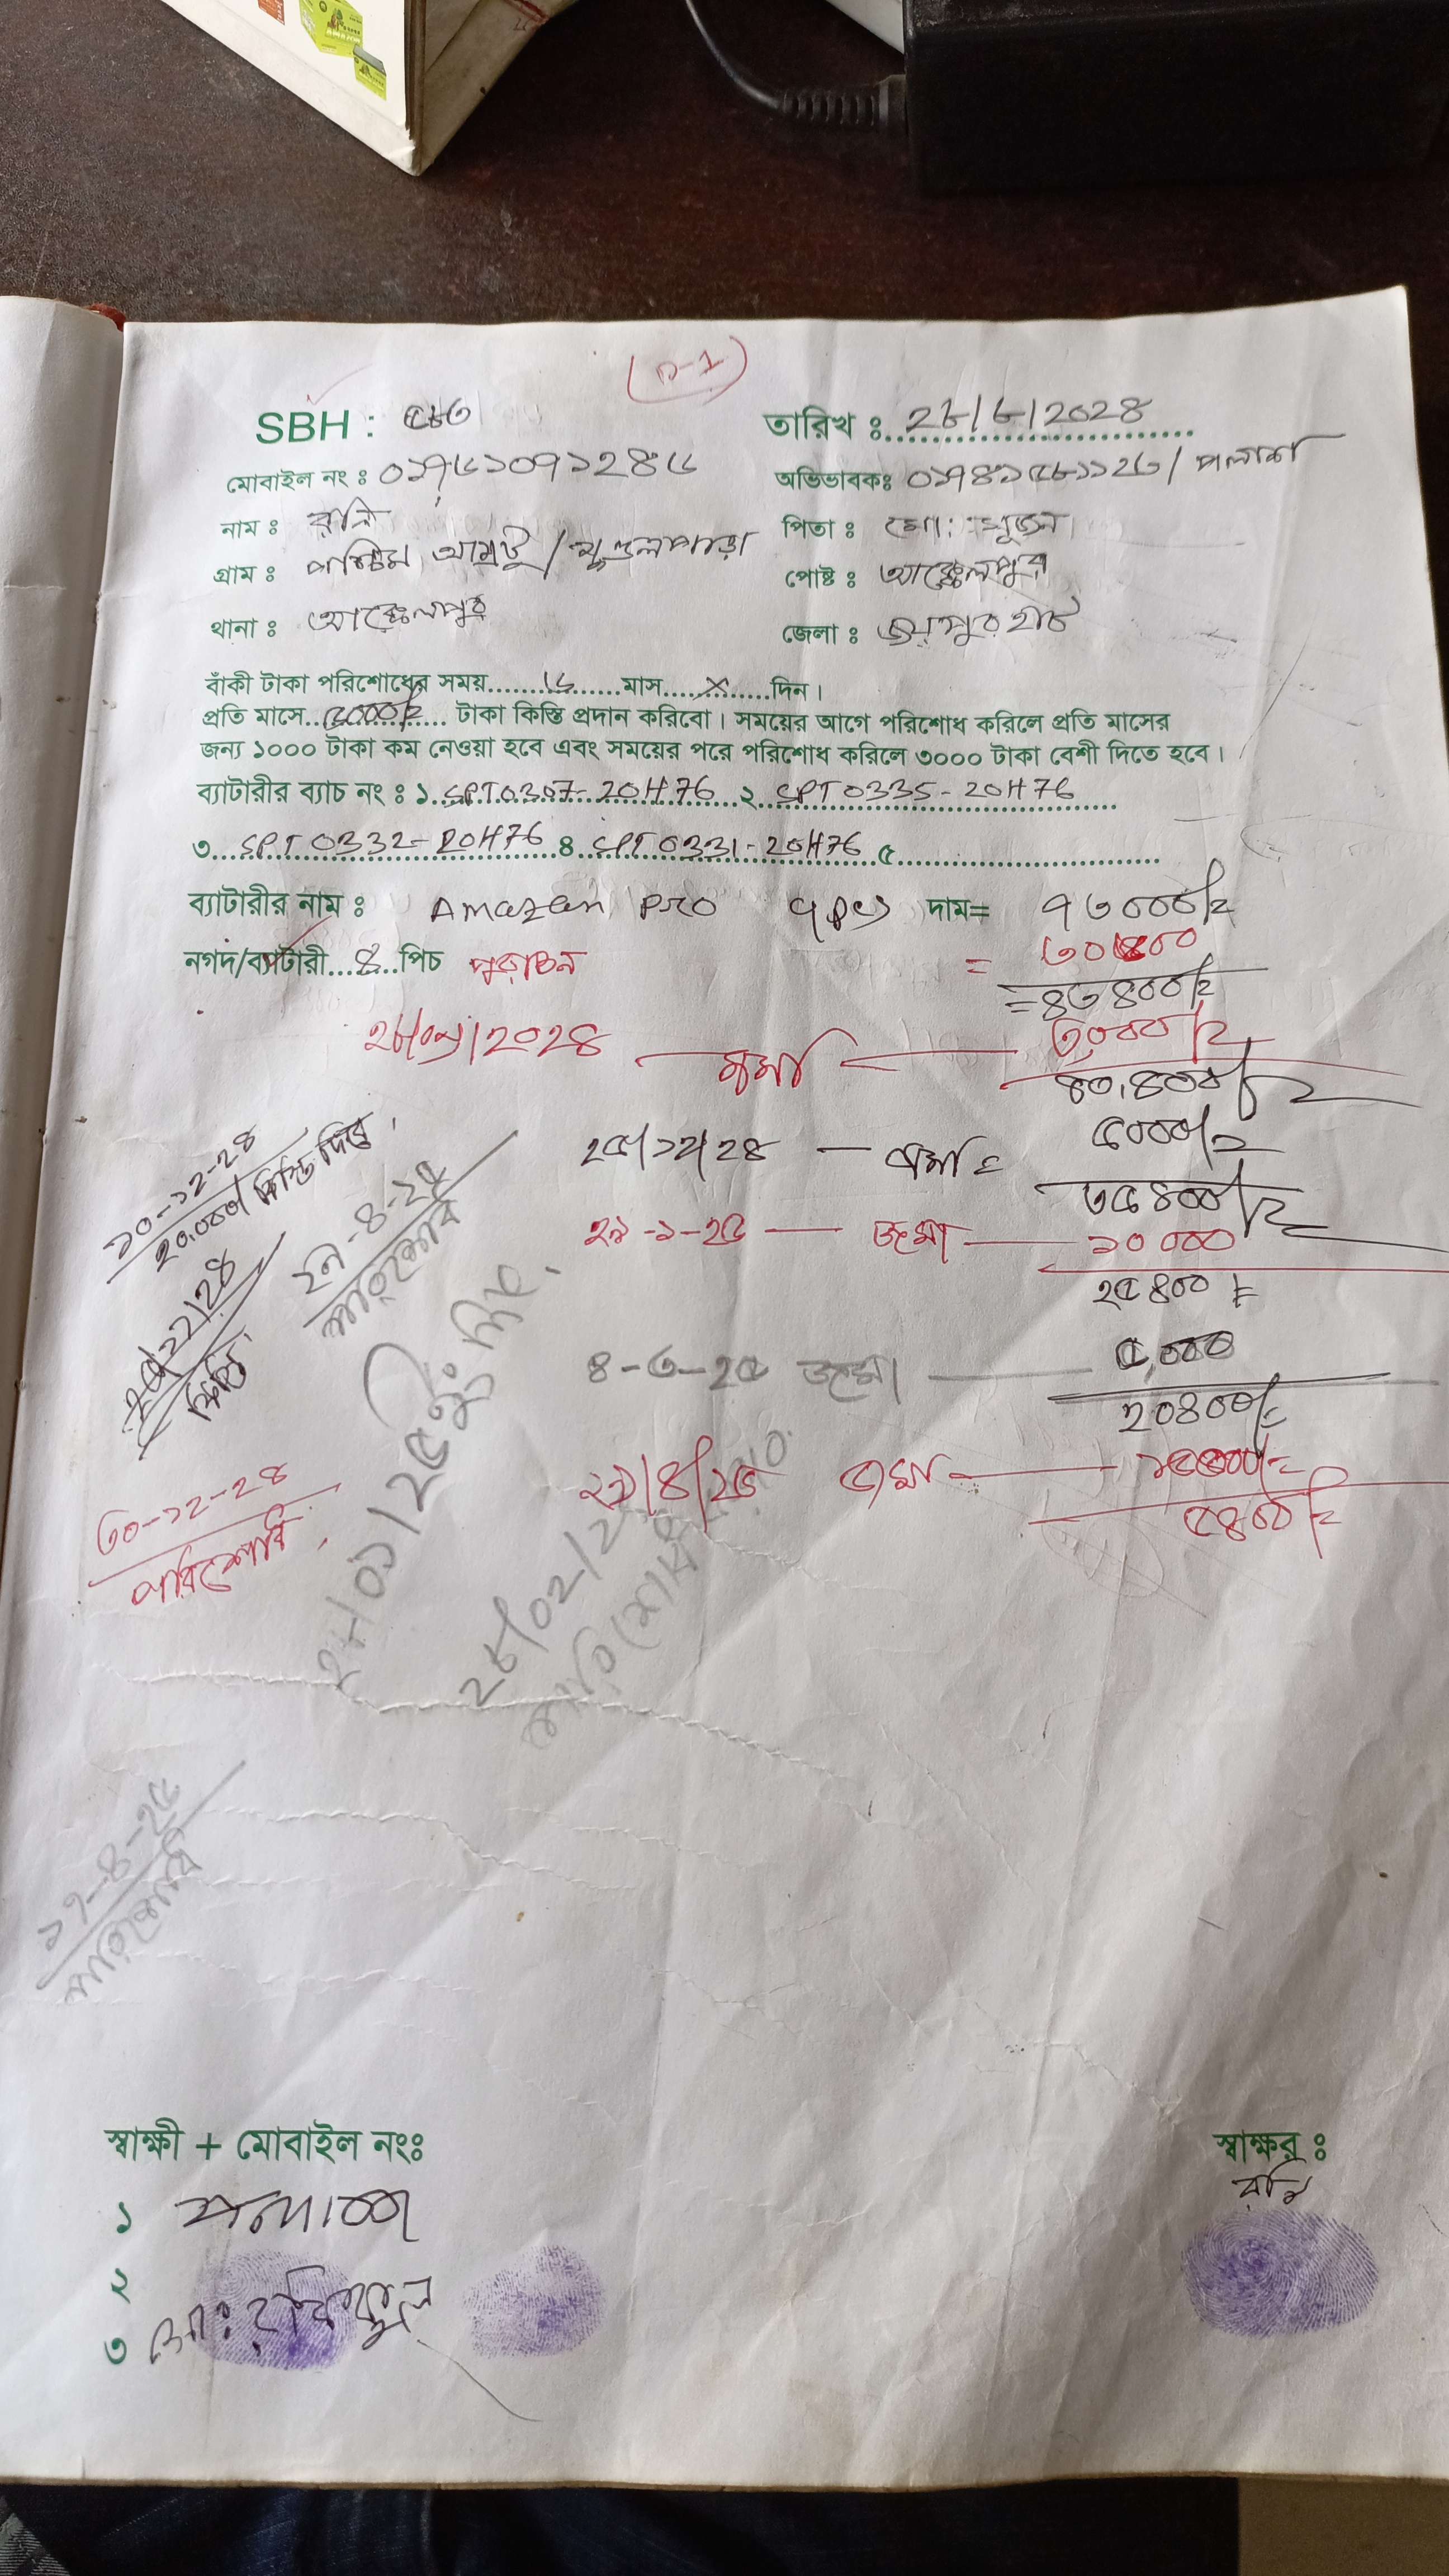 (n-1)
SBH : ৫৮৩
তারিখ ঃ 2৮/৬/2028
মোবাইল নং ঃ ০১৭৬১০৭১2৪৬
অভিভাবকঃ ০১৭৪১৫৮১১2৩ / পলাশ
নাম ঃ রনি
পিতা ঃ মো:
গ্রাম ঃ পশ্চিম
পোষ্ট ঃ আক্কেলপুর
থানা ঃ আক্কেলপুর
জেলা ঃ জয়পুরহাট
বাঁকী টাকা পরিশোধের সময়.......৬.......মাস.....X.....দিন।
প্রতি মাসে..৫০০০/=.... টাকা কিস্তি প্রদান করিবো। সময়ের আগে পরিশোধ করিলে প্রতি মাসের
জন্য ১০০০ টাকা কম নেওয়া হবে এবং সময়ের পরে পরিশোধ করিলে ৩০০০ টাকা বেশী দিতে হবে।
ব্যাটারীর ব্যাচ নং ঃ ১..SPT0307-20H76..২..SPT0335-20H76
৩...SPT0332-20H76..৪..SPT0331-20H76..৫
ব্যাটারীর নাম ঃ Amazon Pro দাম= ৭৩০০০/=
নগদ/ব্যাটারী...৪..পিচ পুরাতন
= ৪৩৪০০/=
জমা ৩,০০০/=
৪০,৪০০/=
২৫/১২/2৪ — জমা = ৫০০০/=
৩৫৪০০/=
২৯-১-২৫ — জমা — ১০০০০
২৫৪০০ /=
৪-৩-২৫ জমা — ৫,০০০
2০৪০০/=
২৯/৪/২৫ জমা — ১৫০০০/=
৫৪০০/=
১০-১২-2৪
২০,০০০/ কিস্তি দিবে।
২৫/১২/2৪
কিস্তি
২৭-৪-২৫
পরিশোধ
৩০-১২-2৪
পরিশোধ
পরিশোধ
১৭-৪-২৫
পরিশোধ
স্বাক্ষী + মোবাইল নংঃ
স্বাক্ষর ঃ
রনি
১ পলাশ
২
৩ মোঃ রফিকুল